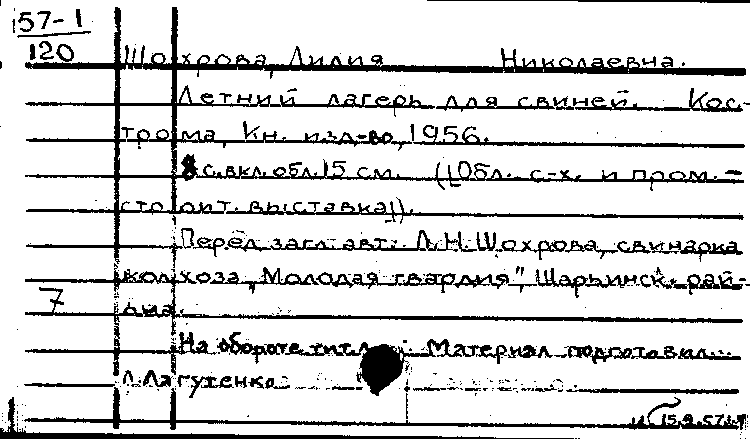 57-1
120
Шохрова, Лилия Николаевна.
Летний лагерь для свиней. Кос-
трома, Кн. изд-во, 1956.
8 с. вкл. обл. 15 см. ([Обл. с-х. и пром.-
строит. выставка]).
Перед загл. авт.: Л.Н. Шохрова, свинарка
колхоза „Молодая гвардия", Шарьинск. рай-
7 она.
На обороте тит. л.: Материал подготовил...
Л. Лагутенко.